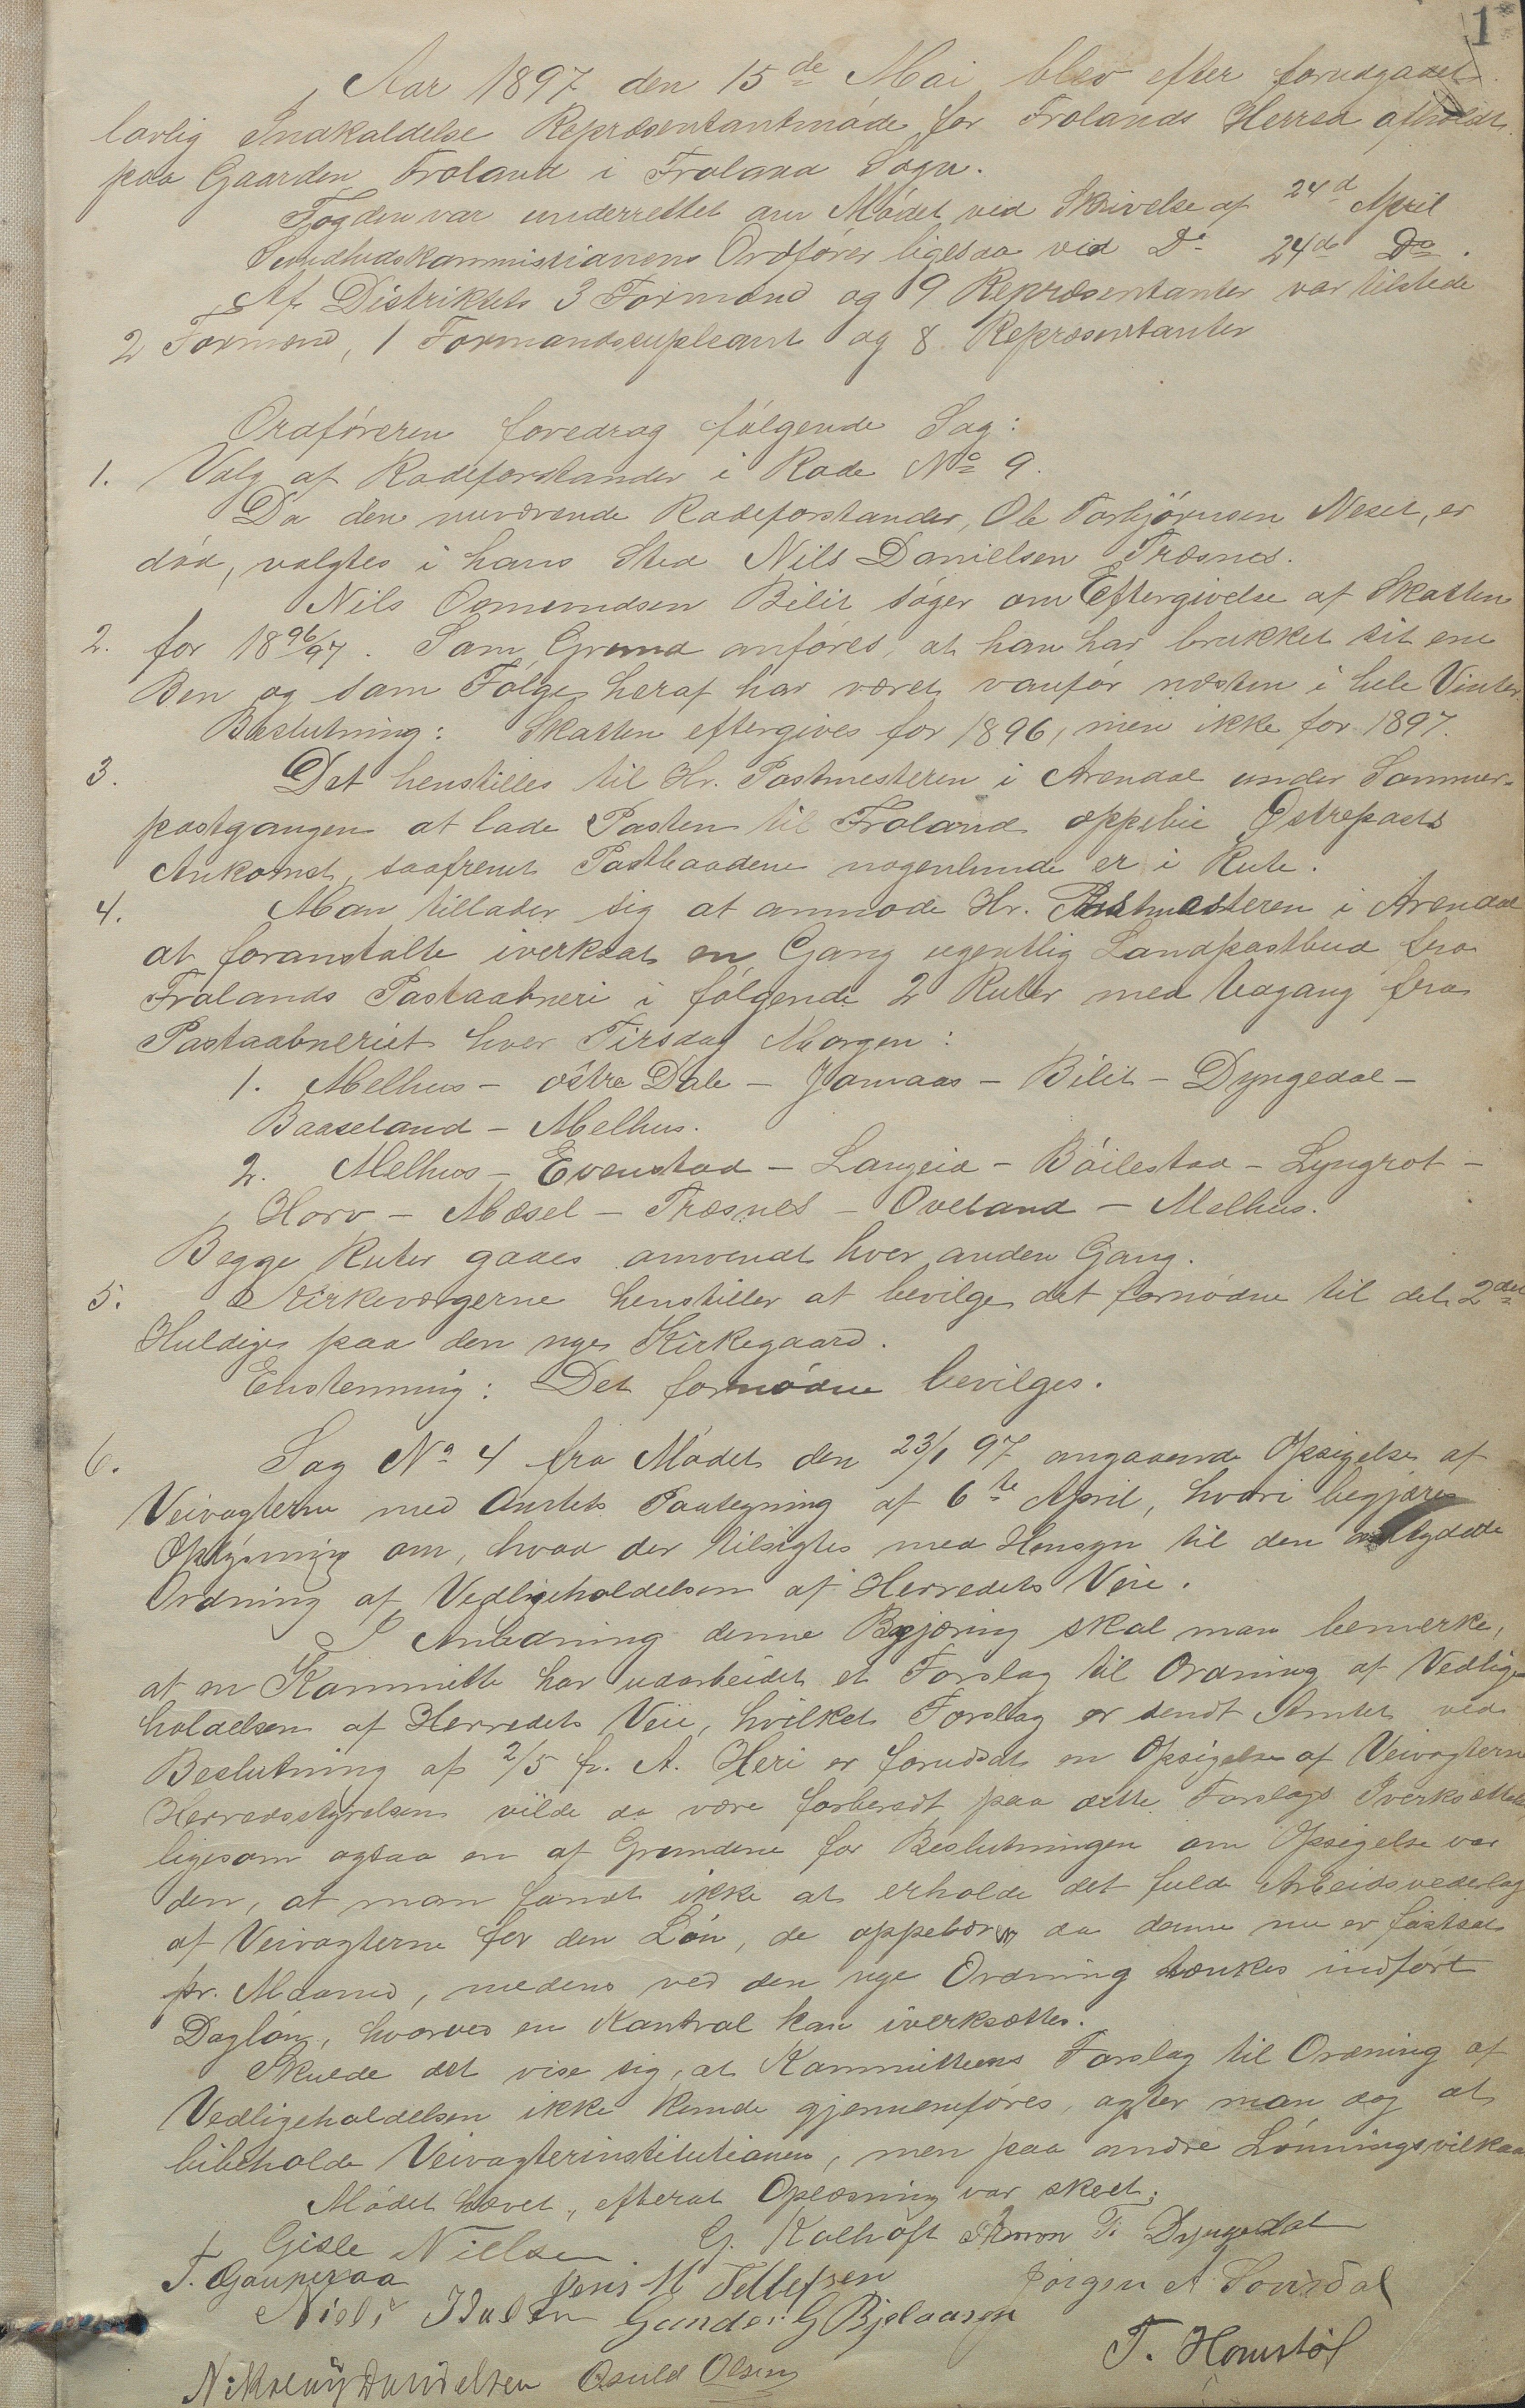 1
Aar 1897 den 15de Mai blev efter forudgaaet
lovlig Indkaldelse Repræsentantmøde for Frolands Herred afholdt
paa Gaarden Froland i Froland Sogn.
Fogden var underrettet om Mødet ved Skrivelse af 24d April
Sundhedskommissionens Ordfører ligesaa ved Do 24de Do.
Af Distriktets 3 Formænd og 9 Repræsentanter var tilstede
2 Formænd, 1 Formandssupleant og 8 Repræsentanter
Ordføreren foredrog følgende Sag:
1. Valg af Rodeforstander i Rode No 9.
Da den nuværende Rodeforstander, Ole Torbjørnsen Neset, er
død, valgtes i hans Sted Nils Danielsen Træsnes.
Nils Osmundsen Bilit søger om Eftergivelse af Skatten
2. for 1896/97. Som Grund anføres, at han har brukket sit ene
Ben og som Følge heraf har været vanfør næsten i hele Vinter
Beslutning: Skatten eftergives for 1896, men ikke for 1897.
3. Det henstilles til Hr. Postmesteren i Arendal under Sommer-
postgangen at lade Posten til Froland oppebie Østreposts
Ankomst, saafremt Postbaadene nogenlunde er i Rute.
4. Man tillader sig at anmode Hr. Postmesteren i Arendal
at foranstalte iverksat en Gang ugentlig Landpostbud fra
Frolands Postaabneri i følgende 2 Ruter med Udgang fra
Postaabneriet hver Tirsdag Morgen:
1. Melhus - østre Dale - Jomaas - Bilit - Dyngedal -
Baaseland - Melhus.
2. Melhus - Evenstad - Langeid - Bøilestad - Lyngrot -
Horv - Mæsel - Træsnes - Oveland - Melhus.
Begge Ruter gaaes omvendt hver anden Gang.
5. Kirkeværgerne henstiller at bevilge det fornødne til det 2det
Huldige paa den nye Kirkegaard.
Enstemmig: Det fornødne bevilges.
6. Sag No 4 fra Mødet den 23/1 97 angaaende Opsigelse af
Veivogterne med Amtets Paategning af 6te April, hvori begjæres
Oplysning om, hvad der tilsigtes med Hensyn til den antydede
Ordning af Vedligeholdelsen af Herredets Veie.
I Anledning denne Begjæring skal man bemerke,
at en Kommitte har udarbeidet et Forslag til Ordning af Vedlige
holdelsen af Herredets Veie, hvilket Forslag er sendt Amtet ved
Beslutning af 2/5 f. A. Heri er forudsat en Opsigelse af Veivogterne
Herredsstyrelsen vilde da være forberedt paa dette Forslags Iverksættelse
ligesom ogsaa en af Grundene for Beslutningen om Opsigelse var
den, at man fandt ikke at erholde det fulde Arbeidsvederlag
af Veivogterne for den Løn, de oppebærer da denne nu er fastsat
pr. Maaned, medens ved den nye Ordning tænkes indført
Dagløn, hvorved en Kontrol kan iverksættes.
Skulde det vise sig, at Kommitteens Forslag til Ordning af
Vedligeholdelsen ikke kunde gjennemføres, agter man dog at
bibeholde Veivogterinstitutionen, men paa andre Lønningsvilkaar
Mødet hævet, efterat Oplæsning var skeet.
Gisle Nielsen. G. Kalhøft Simon T. Dyngedal
T. Gauperaa Jens M Tellefsen Jørgen A Sovdal
Niels Gunder G Bjelaasen
T. Homstøl
Nikolai Danielsen Osuld Olsen